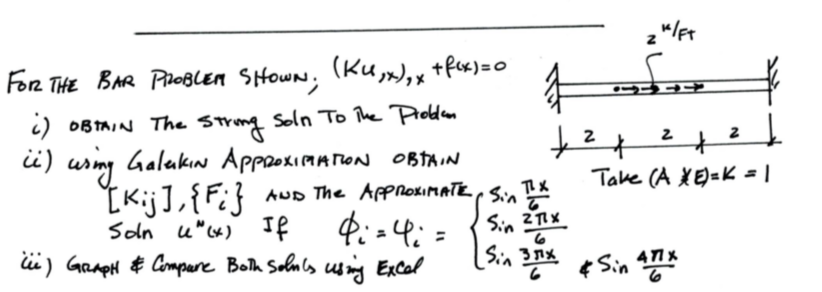 FOR THE BAR PROBLEM SHOWN; (Ku,x),x +f(x)=0
2 K/FT
i) OBTAIN The Strong Soln To The Problem
ii) using Galerkin APPROXIMATION OBTAIN
2 2 2
[Kij], {Fi} AND The APPROXIMATE
Take (A * E)=K = 1
Soln uᴺ(x) If ϕi = φi = { Sin πx/6
Sin 2πx/6
Sin 3πx/6 & Sin 4πx/6
iii) GRAPH & Compare Both Solnls using Excel